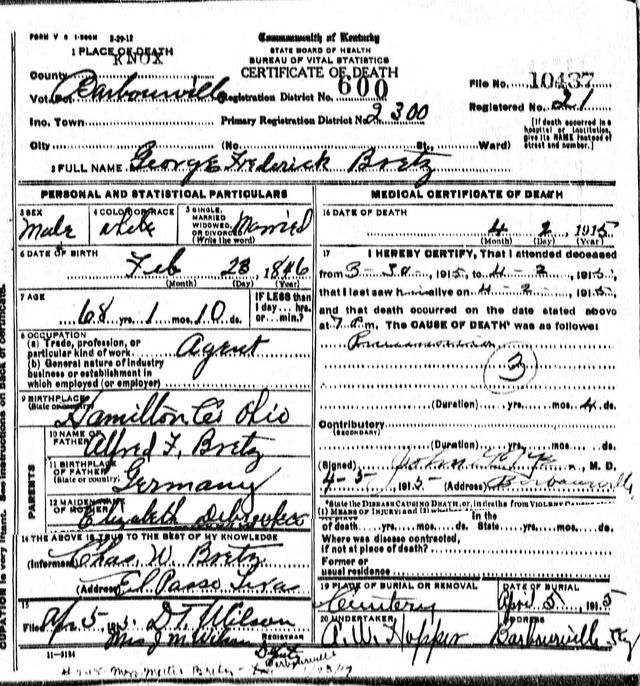 FORM V S 1-500M 2-29-12
Commonwealth of Kentucky
STATE BOARD OF HEALTH
BUREAU OF VITAL STATISTICS
CERTIFICATE OF DEATH
1 PLACE OF DEATH
KNOX
County
Vot. Pct. Barbourville
Registration District No. 600
File No. 10437
Inc. Town
Primary Registration District No. 2300
Registered No. 21
[If death occurred in a hospital or institution, give its NAME instead of street and number.]
City (No. St., Ward)
2 FULL NAME George Frederick Bretz
PERSONAL AND STATISTICAL PARTICULARS
3 SEX
Male
4 COLOR OR RACE
White
5 SINGLE, MARRIED WIDOWED, OR DIVORCED (Write the word)
Married
6 DATE OF BIRTH
Feb 23 1846
(Month) (Day) (Year)
7 AGE
68 yrs. 1 mos. 10 ds.
IF LESS than 1 day --- hrs. or --- min.?
8 OCCUPATION
(a) Trade, profession, or particular kind of work Agent
(b) General nature of industry business or establishment in which employed (or employer)
9 BIRTHPLACE
(State or country)
Hamilton Co Ohio
PARENTS
10 NAME OF FATHER
Alfred F. Bretz
11 BIRTHPLACE OF FATHER
(State or country)
Germany
12 MAIDEN NAME OF MOTHER
Elizabeth
14 THE ABOVE IS TRUE TO THE BEST OF MY KNOWLEDGE
(Informant) Chas. W. Bretz
(Address) El Passo Texas
15
Filed Apr 5, 1915 D. T. Wilson
Mrs J. M. Wilson
REGISTRAR
Deputy
Barbourville
11-3184
MEDICAL CERTIFICATE OF DEATH
16 DATE OF DEATH
4 2 1915
(Month) (Day) (Year)
17 I HEREBY CERTIFY, That I attended deceased
from 3-30, 1915, to 4-2, 1915,
that I last saw him alive on 4-2, 1915,
and that death occurred on the date stated above
at 7 P.m. The CAUSE OF DEATH was as follows:
Pneumonia
3
(Duration) yrs. mos. 4 ds.
Contributory
(SECONDARY)
(Duration) yrs. mos. ds.
(Signed) M. D.
4-5, 1915 (Address) Barbourville
*State the DISEASE CAUSING DEATH, or, in deaths from VIOLENT
(1) MEANS OF INJURY; and (2) whether
In the
of death yrs. mos. ds. State yrs. mos. ds.
Where was disease contracted,
If not at place of death?
Former or
usual residence
19 PLACE OF BURIAL OR REMOVAL
Cemetery
DATE OF BURIAL
April 3, 1915
20 UNDERTAKER
A. W. Hopper
ADDRESS
Barbourville Ky